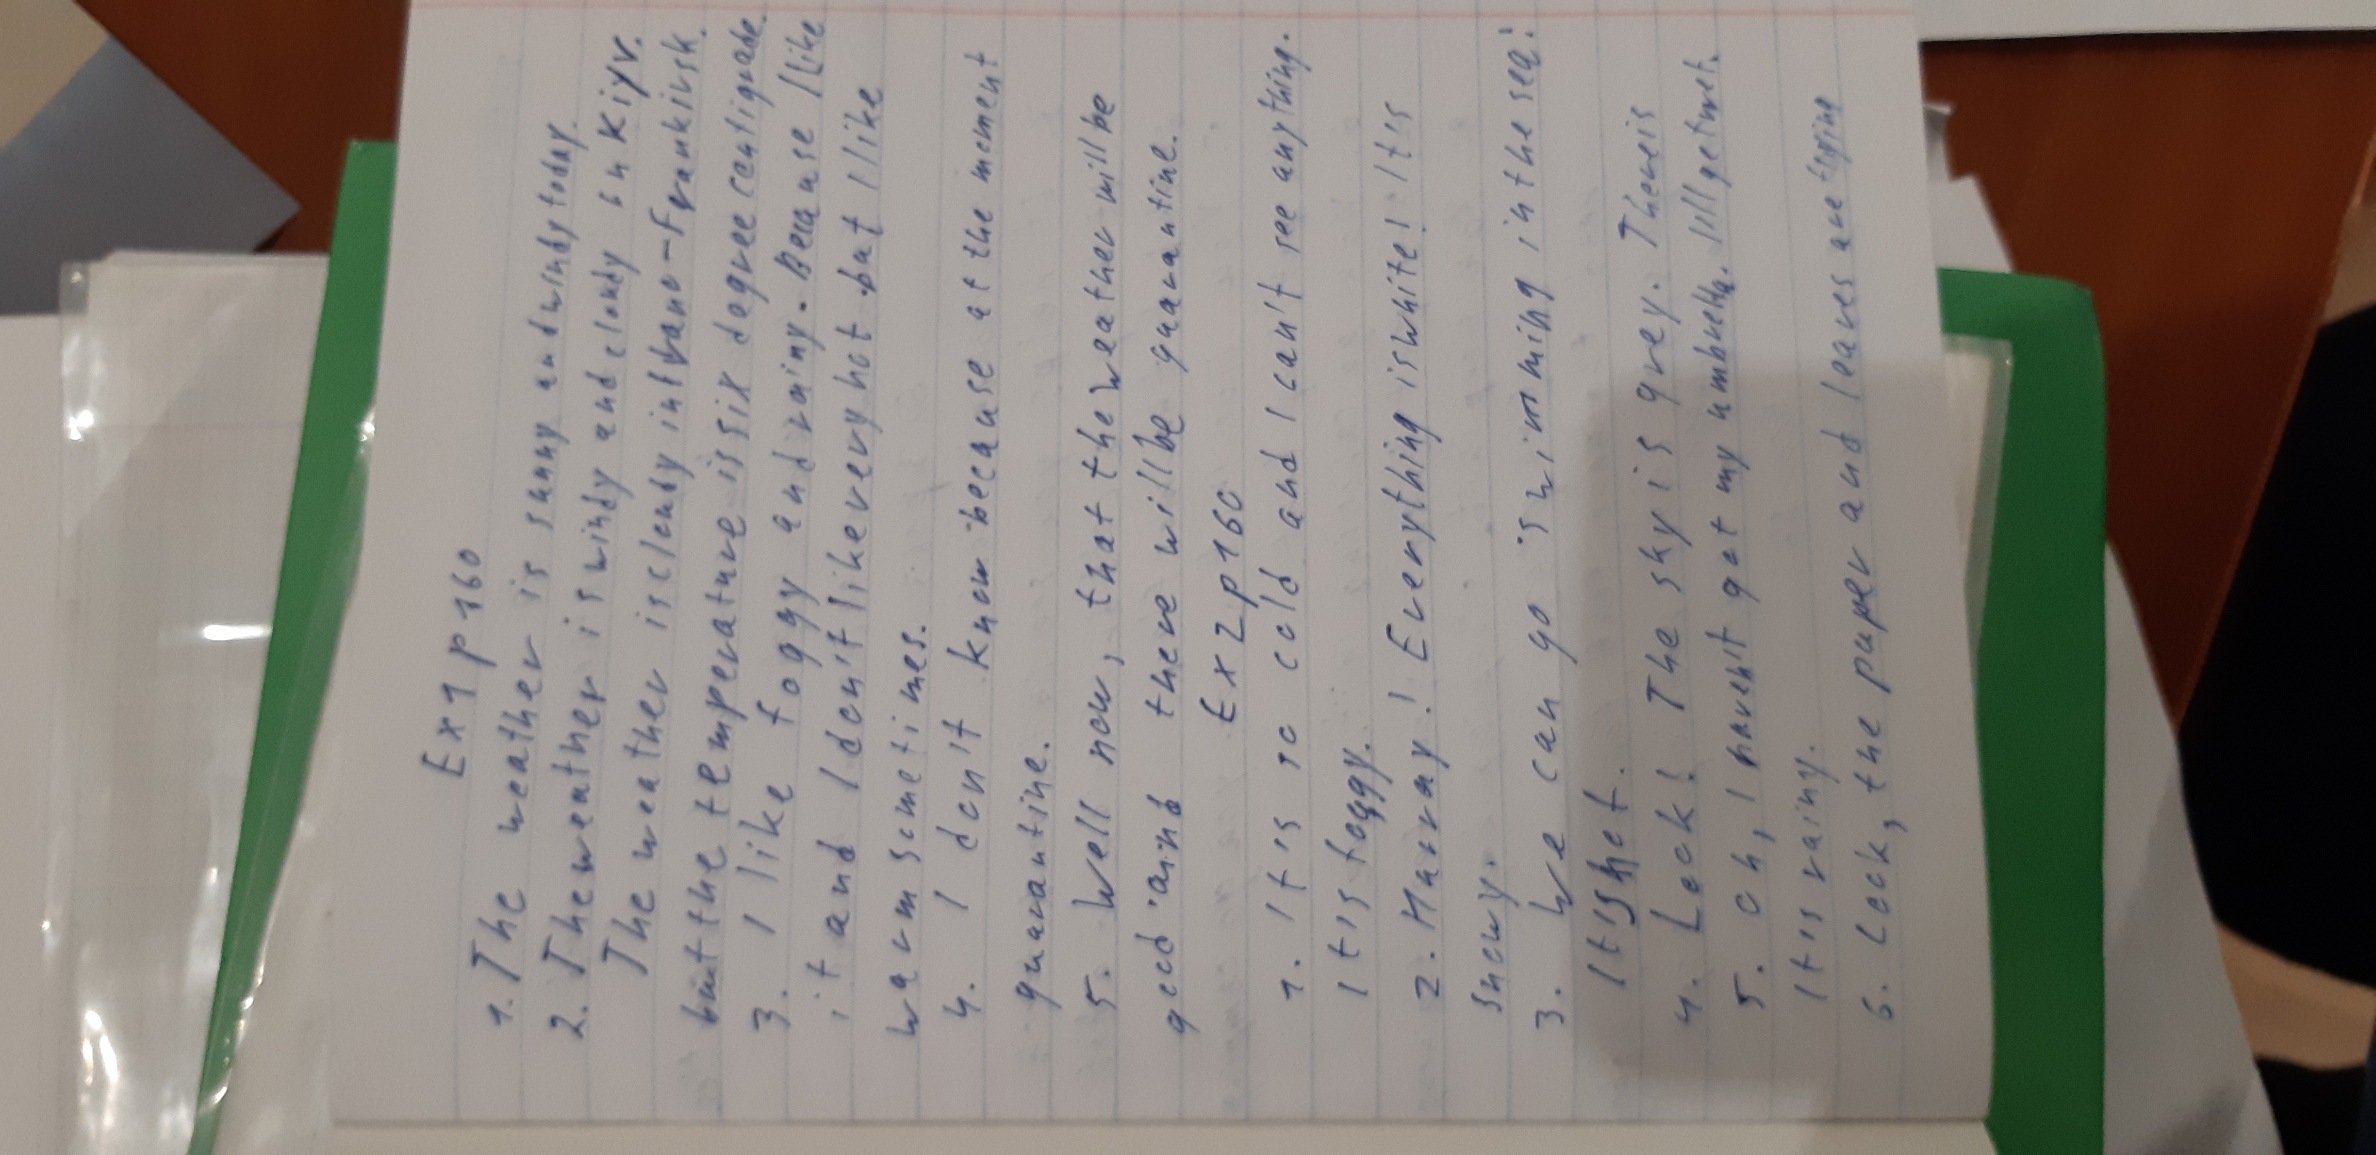 Ex 1 p 160
1. The weather is sunny and windy today.
2. The weather is windy and cloudy in Kiyv.
The weather is cloudy in Ivano-Frankivsk.
but the temperature is six degree centigrade.
3. I like foggy and rainy. Because I like
it and I don't like very hot but I like
warm sometimes.
4. I don't know because at the moment
quarantine.
5. Well now, that the weather will be
good and there will be quarantine.
Ex 2 p 160
1. It's so cold and I can't see anything.
It's foggy.
2. Hurray! Everything is white! It's
snowy.
3. We can go swimming in the sea!
It's hot.
4. Look! The sky is grey. There is
5. Oh, I haven't got my umbrella. I'll get wet.
It's rainy.
6. Look, the paper and leaves are